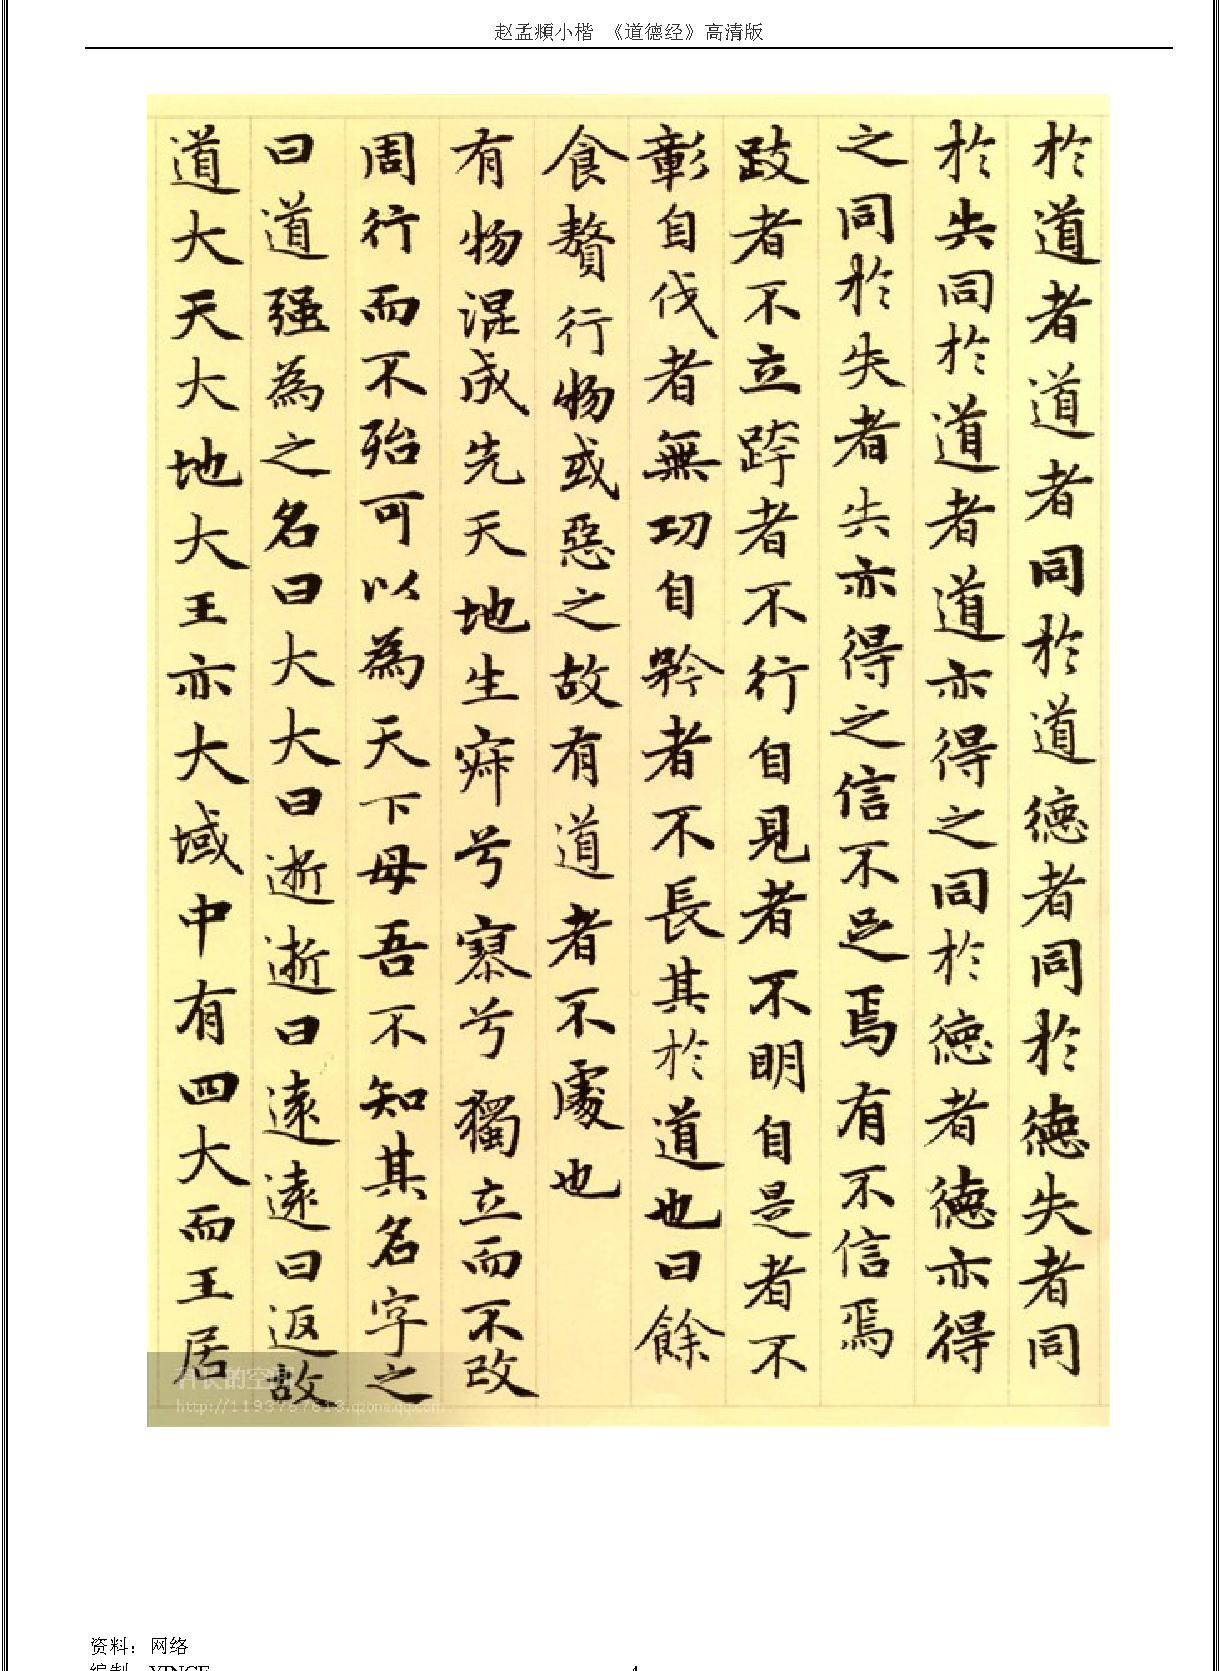 赵孟頫小楷 《道德经》高清版
於道者道者同於道德者同於德失者同
於失同於道者道亦得之同於德者德亦得
之同於失者失亦得之信不足焉有不信焉
跂者不立跨者不行自見者不明自是者不
彰自伐者無功自矜者不長其於道也曰餘
食贅行物或惡之故有道者不處也
有物混成先天地生寂兮寥兮獨立而不改
周行而不殆可以為天下母吾不知其名字之
曰道强為之名曰大大曰逝逝曰遠遠曰返故
道大天大地大王亦大域中有四大而王居
的空间
资料：网络
编制：YINCE
4